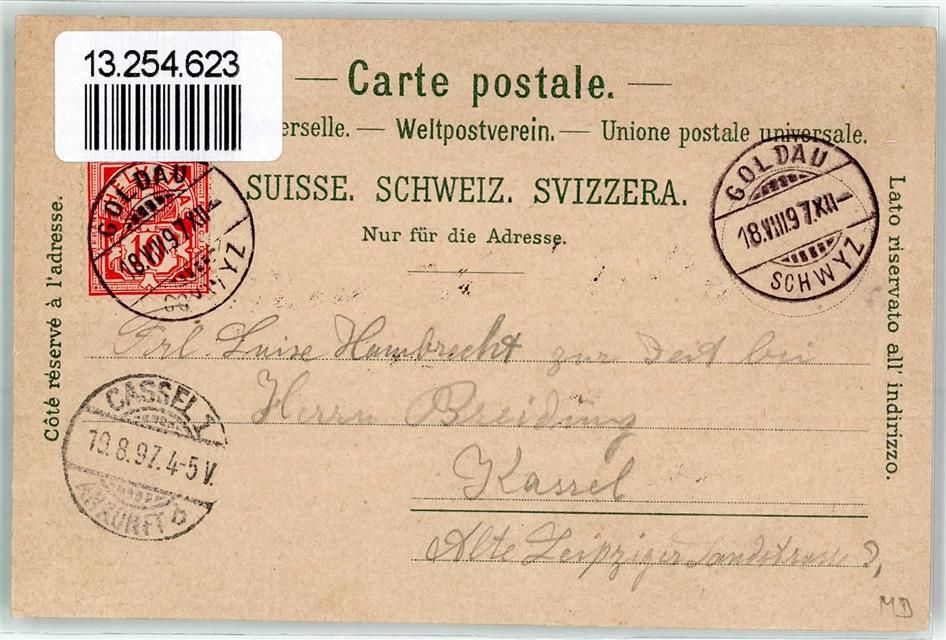 13.254.623
Carte postale.
erselle. — Weltpostverein. — Unione postale universale.
SUISSE. SCHWEIZ. SVIZZERA.
Nur für die Adresse.
Côté réservé à l'adresse.
Lato riservato all' indirizzo.
HELVETIA
10
GOLDAU
18.VIII.97.XII–
SCHWYZ
GOLDAU
18.VIII.97.XII–
SCHWYZ
CASSEL 1
19.8.97.4-5V.
ANKUNFT b
Frl. Luise Hambrecht zur Zeit bei
Herrn Breiding
Kassel
Alte Leipziger Landstrasse
MD